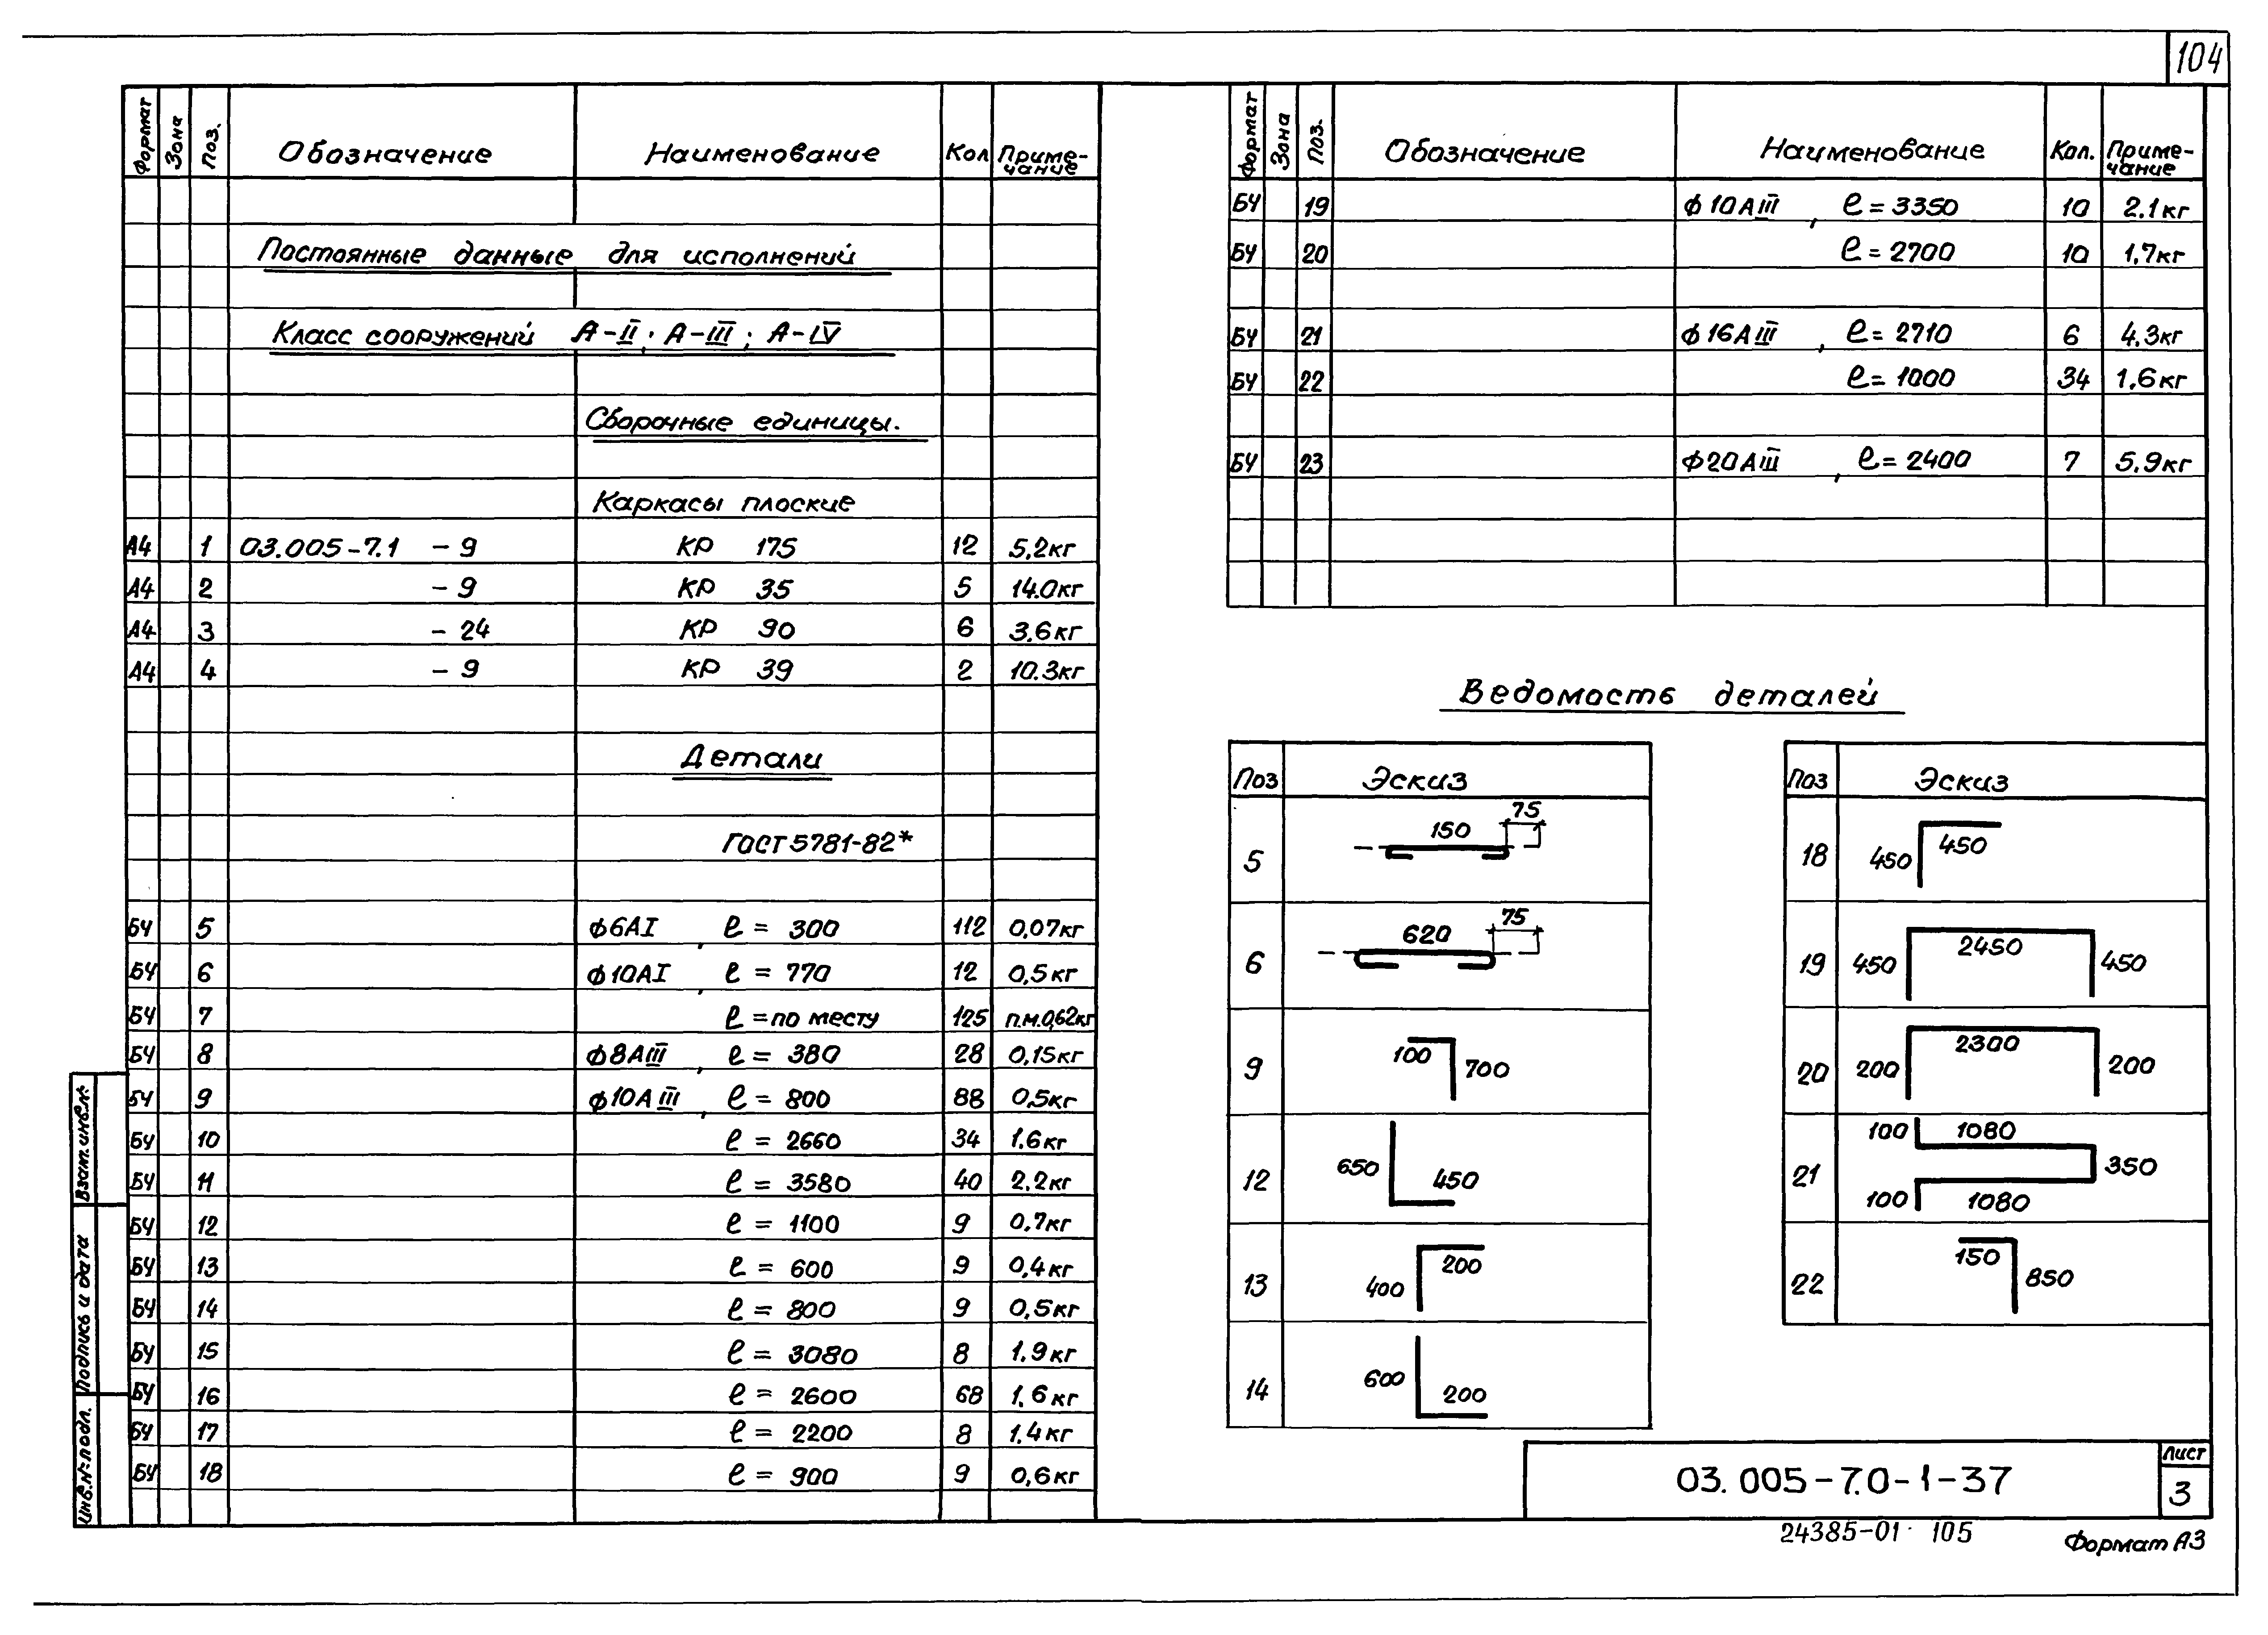 104
Формат Зона Поз. Обозначение Наименование Кол Приме-чание
Постоянные данные для исполнений
Класс сооружений А-II; А-III; А-IV
Сборочные единицы.
Каркасы плоские
А4 1 03.005-7.1 - 9 КР 175 12 5,2кг
А4 2 - 9 КР 35 5 14.0кг
А4 3 - 24 КР 90 6 3.6кг
А4 4 - 9 КР 39 2 10.3кг
Детали
ГОСТ 5781-82*
БЧ 5 ф6АI, ℓ = 300 112 0,07кг
БЧ 6 ф10АI, ℓ = 770 12 0,5кг
БЧ 7 ℓ = по месту 125 п.м.0,62кг
БЧ 8 ф8АIII, ℓ = 380 28 0,15кг
БЧ 9 ф10АIII, ℓ = 800 88 0,5кг
БЧ 10 ℓ = 2660 34 1.6кг
БЧ 11 ℓ = 3580 40 2.2кг
БЧ 12 ℓ = 1100 9 0,7кг
БЧ 13 ℓ = 600 9 0,4кг
БЧ 14 ℓ = 800 9 0,5кг
БЧ 15 ℓ = 3080 8 1.9кг
БЧ 16 ℓ = 2600 68 1.6кг
БЧ 17 ℓ = 2200 8 1.4кг
БЧ 18 ℓ = 900 9 0,6кг
Взам. инв.№
Подпись и дата
Инв.№ подл.
Формат Зона Поз. Обозначение Наименование Кол. Приме-чание
БЧ 19 ф10АIII, ℓ = 3350 10 2.1кг
БЧ 20 ℓ = 2700 10 1,7кг
БЧ 21 ф16АIII, ℓ = 2710 6 4.3кг
БЧ 22 ℓ = 1000 34 1.6кг
БЧ 23 ф20АIII, ℓ = 2400 7 5.9кг
Ведомость деталей
Поз Эскиз
5 150 75
6 620 75
9 100 700
12 650 450
13 400 200
14 600 200
Поз Эскиз
18 450 450
19 450 2450 450
20 200 2300 200
21 100 1080 350 100 1080
22 150 850
03.005-7.0-1-37
Лист
3
24385-01 105
Формат А3